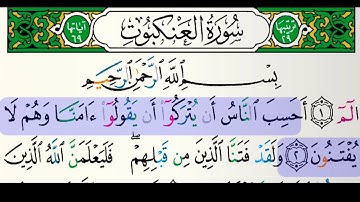 ترتيبها ٢٩ سُورَةُ الْعَنْكَبُوتِ آياتها ٦٩
بِسْمِ اللَّهِ الرَّحْمَٰنِ الرَّحِيمِ
الٓمٓ ١ أَحَسِبَ النَّاسُ أَن يُتْرَكُوٓا۟ أَن يَقُولُوٓا۟ ءَامَنَّا وَهُمْ لَا
يُفْتَنُونَ ٢ وَلَقَدْ فَتَنَّا الَّذِينَ مِن قَبْلِهِمْ ۖ فَلَيَعْلَمَنَّ اللَّهُ الَّذِينَ